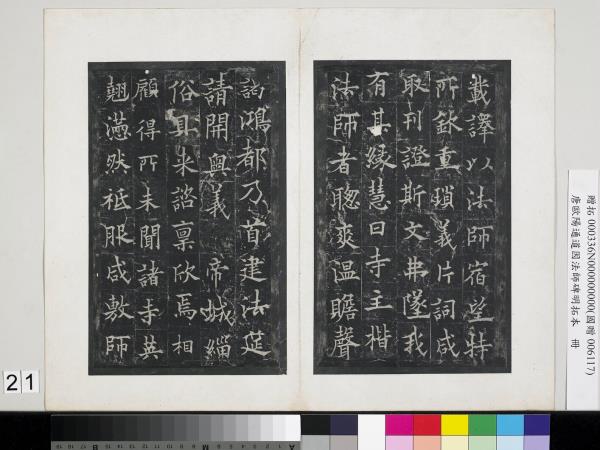 載譯以法師宿望特
所欽重瑣義片詞咸
取刊證斯文弗墜我
有其緣慧日寺主楷
法師者聰爽溫贍聲
詢鴻都乃首建法筵
請開奧義帝城緇
俗具來諮稟欣焉相
顧得所未聞諸寺英
翹懣然祗服咸敷師
贈拓 000336N000000000(國贈 006117)
唐歐陽通道因法師碑明拓本 冊
21